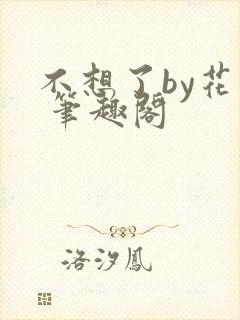 不想了by花
筆趣閣
洛汐鳳